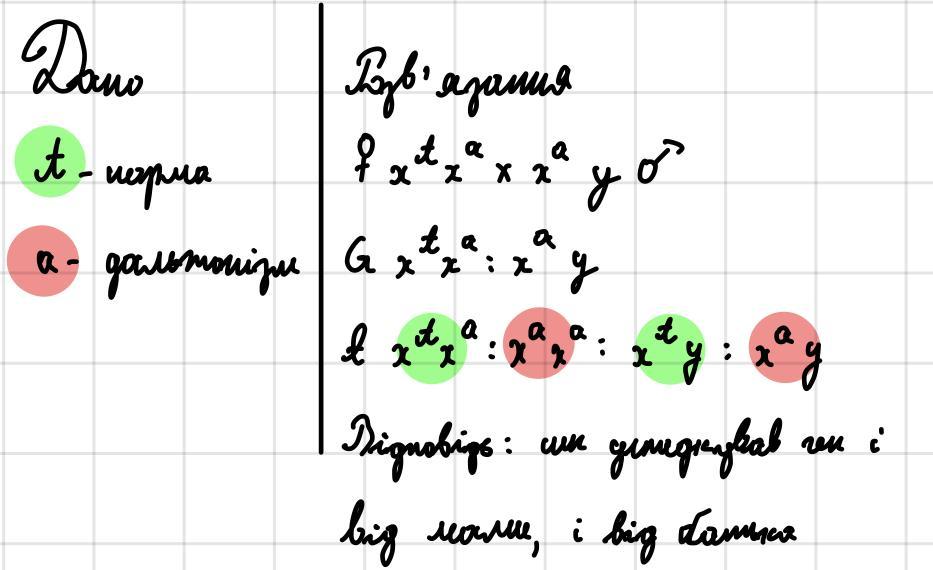 Дано
A - норма
a - дальтонізм
Розв'язання
P x^A x^a x x^a y ♂
G x^A x^a : x^a y
F x^A x^a : x^a x^a : x^A y : x^a y
Відповідь: син успадкував ген і
від мами, і від батька